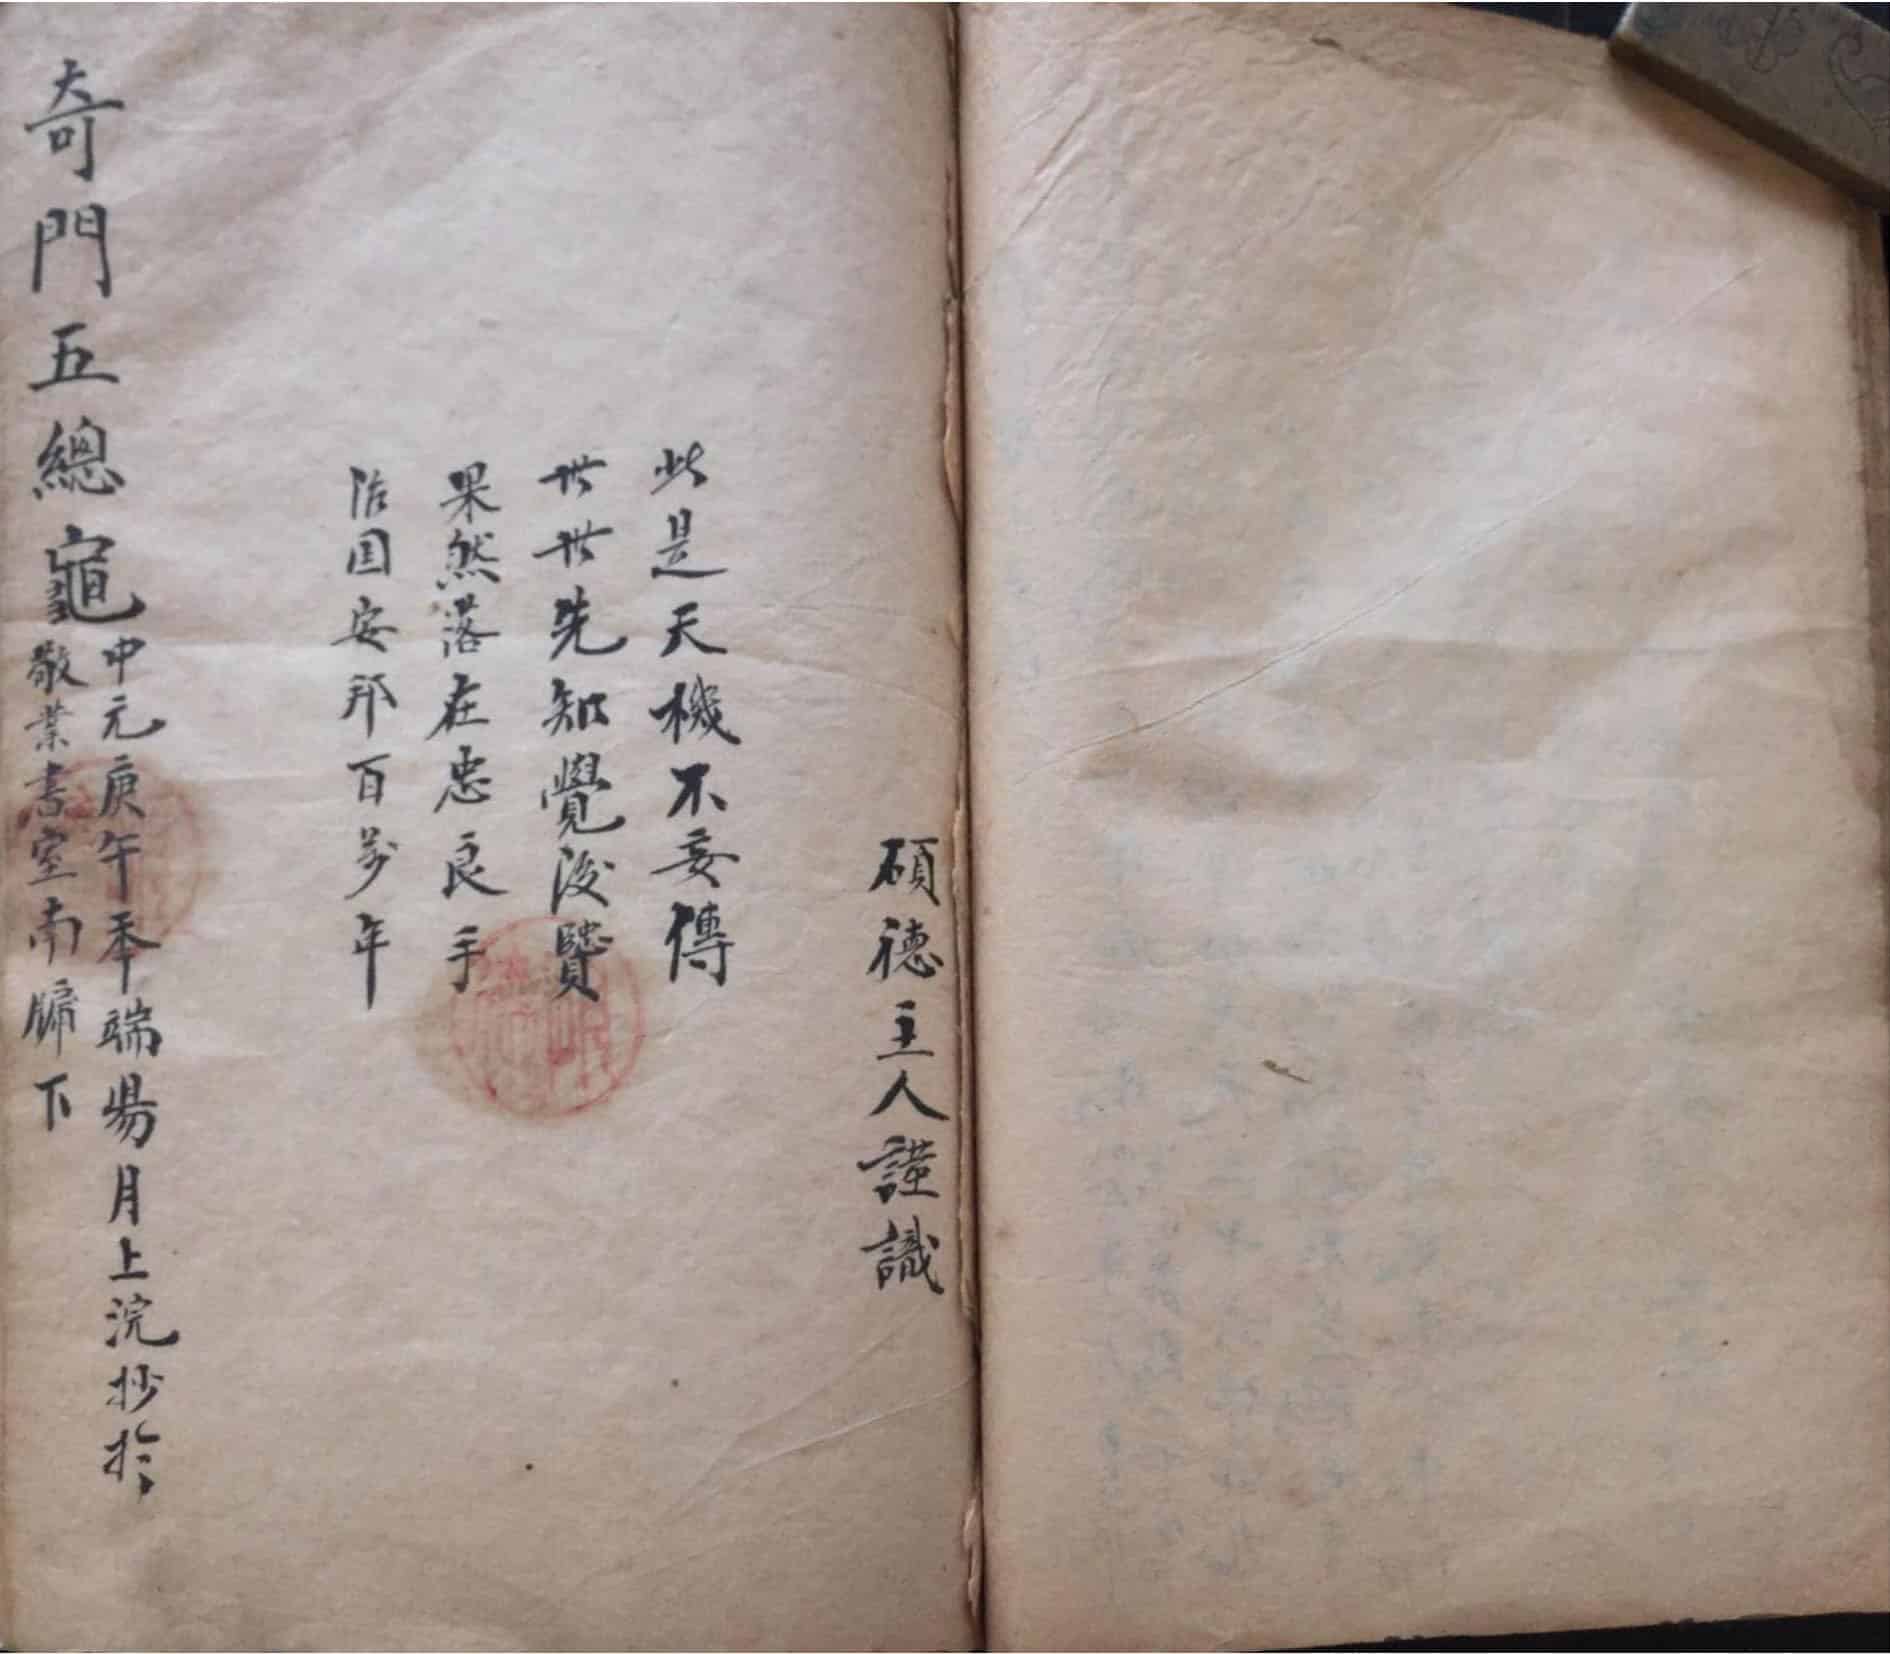 碩德主人謹識
此是天機不妄傳
世世先知覺後賢
果然落在忠良手
治国安邦百萬年
中元庚午奉端陽月上浣抄於
敬業書室南牖下
奇門五總龜